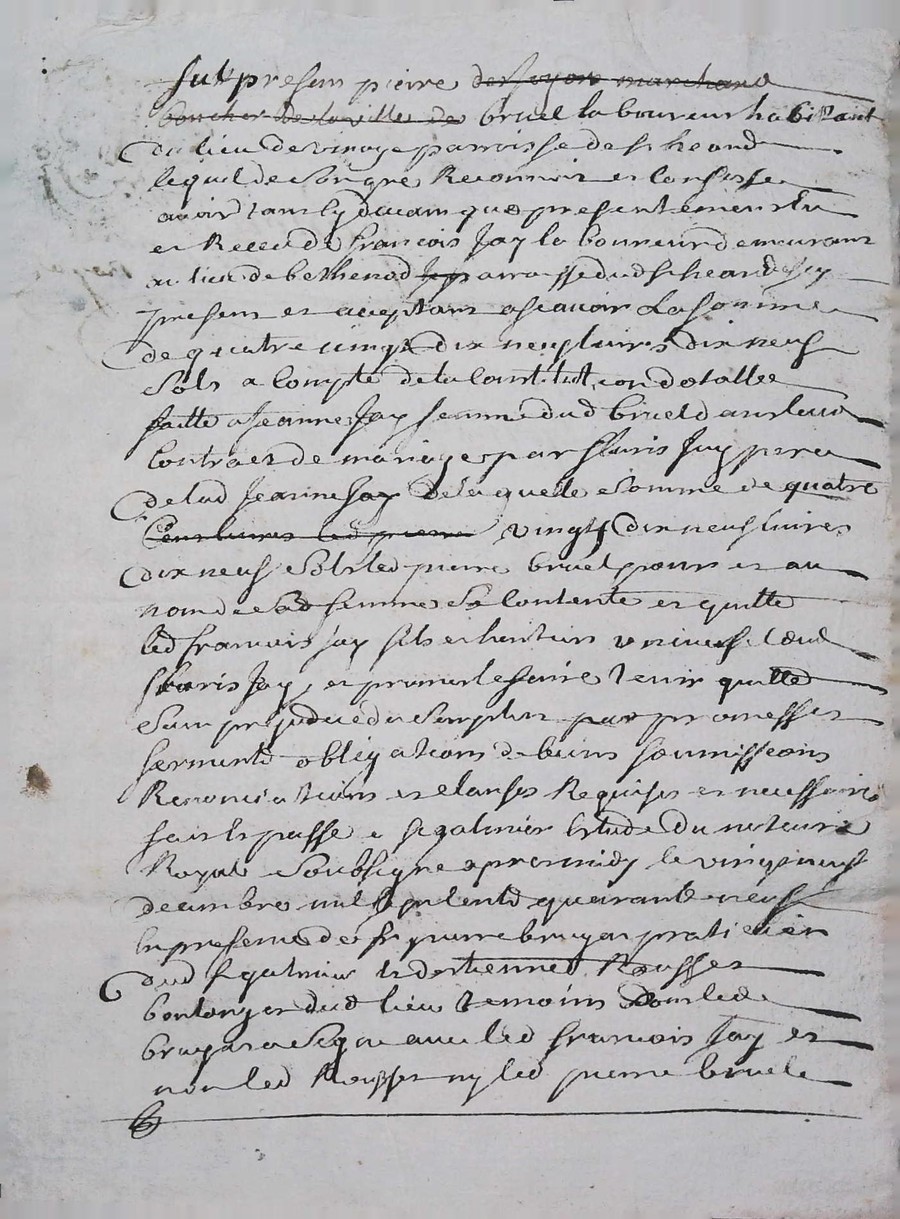 fut presen pierre de foyon marchand
boucher de la ville de bruel laboureur habitant
du lieu de parroisse de st heand
lequel de son gre Reconnoit et confesse
avoir presentement Eu
et Receu de francois Jay laboureur demeurant
au lieu de bethenod parroisse dud st heand Icy
presen et acceptant ascavoir La somme
de quatre vingt dix neuf livres dix neuf
sols a compte de la constitution dotalle
faitte a Jeanne Jay femme dud bruel dans leur
contract de mariage par fleuris Jay pere
de lad Jeanne Jay de laquelle somme de quatre
cent livres led pierre vingt dix neuf livres
dix neuf sols led pierre bruel pour et au
nom de sad femme se contente et quitte
led francois Jay fils et heritier universel dud
fleuris Jay, et promet le faire tenir quitte
sans prejudice du surplus par promesses
serments obligations de biens soumissions
Renonciations et clauses Requises et necessaires
fait et passe a st galmier Estude du notaire
Royal soubsigne apres midy le vingt neuf
decembre mil sept cents quarante neuf
En presence de sr pierre bruyas praticien
dud st galmier et destienne Rousset
boulanger dud lieu temoins dont led
bruyas a signe avec led francois Jay et
non led Rousset ny led pierre bruel